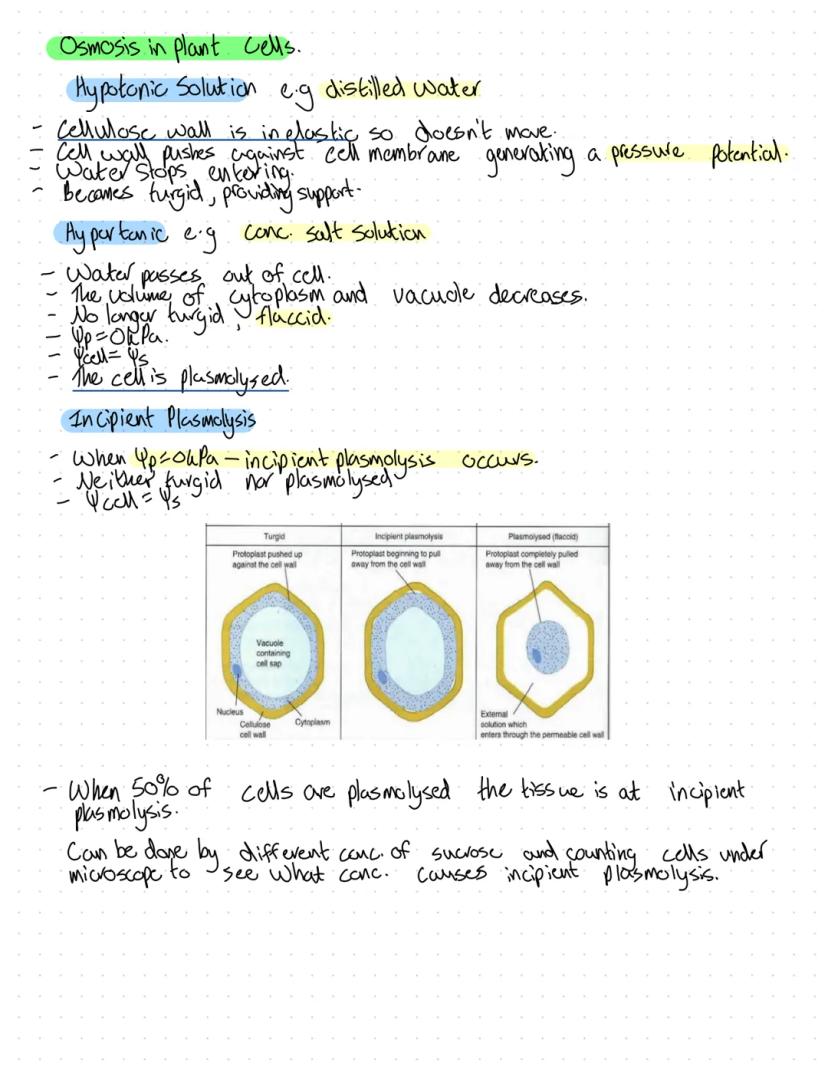 Osmosis in plant cells.
Hypotonic Solution e.g distilled water
- Cellulose wall is inelastic so doesn't move.
- Cell wall pushes against cell membrane generating a pressure potential.
- Water stops entering.
- Becomes turgid, providing support.
Hypertonic e.g conc. salt solution
- Water passes out of cell.
- The volume of cytoplasm and vacuole decreases.
- No longer turgid, flaccid.
- Ψp=0kPa.
- Ψcell=Ψs
- The cell is plasmolysed.
Incipient Plasmolysis
- When Ψp=0kPa – incipient plasmolysis occurs.
- Neither turgid nor plasmolysed
- Ψcell=Ψs
Turgid
Protoplast pushed up
against the cell wall
Vacuole
containing
cell sap
Nucleus
Cellulose
cell wall
Cytoplasm
Incipient plasmolysis
Protoplast beginning to pull
away from the cell wall
Plasmolysed (flaccid)
Protoplast completely pulled
away from the cell wall
External
solution which
enters through the permeable cell wall
- When 50% of cells are plasmolysed the tissue is at incipient
plasmolysis.
Can be done by different conc. of sucrose and counting cells under
microscope to see what conc. causes incipient plasmolysis.